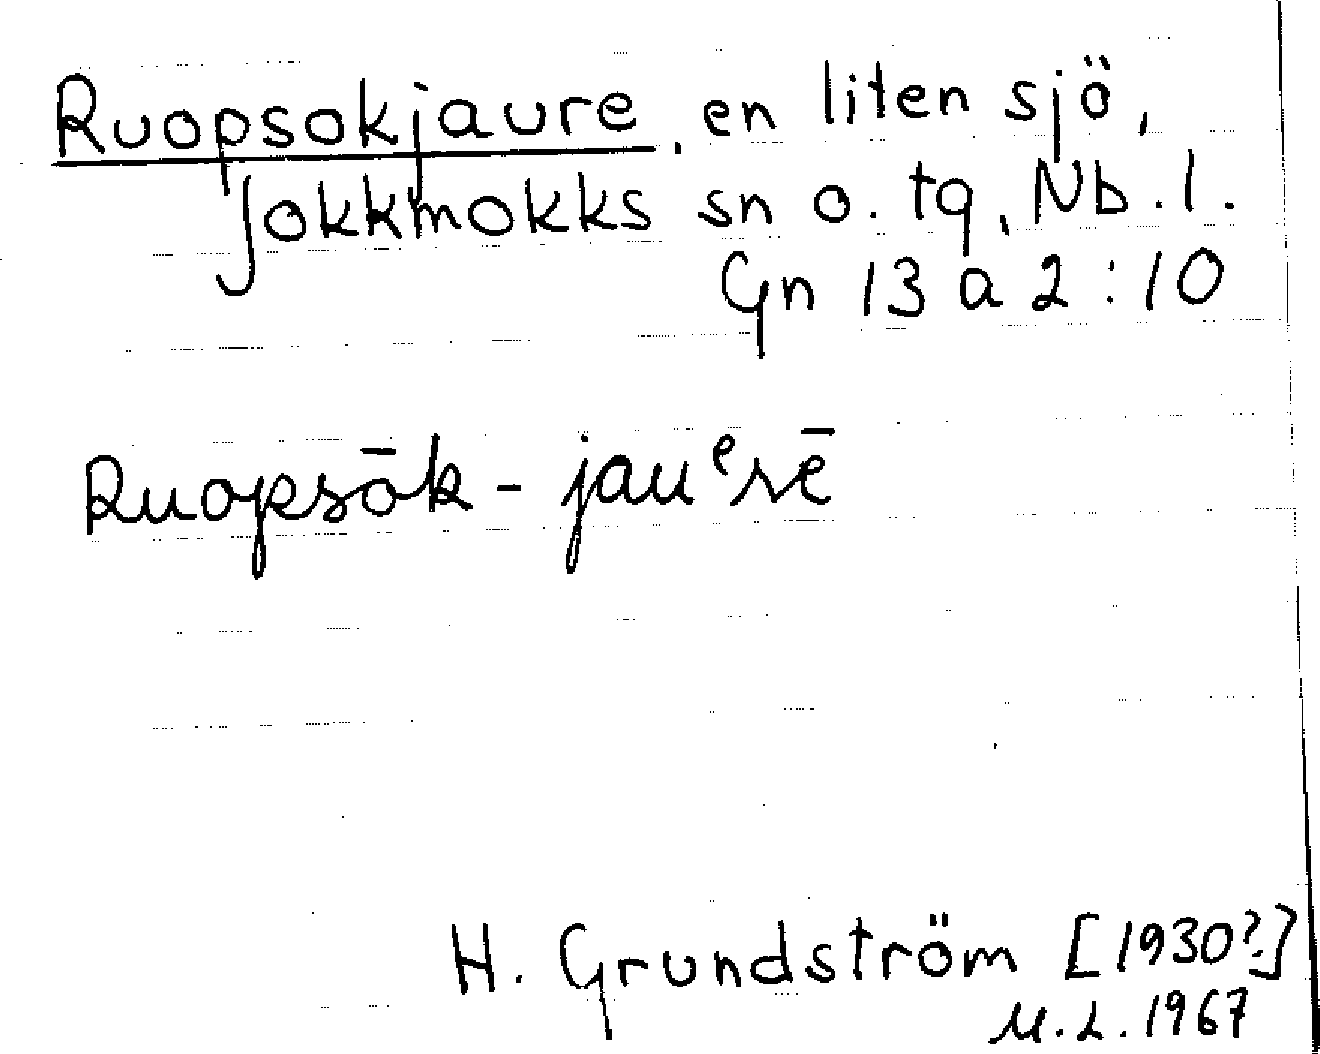 Ruopsokjaure, en liten sjö,
Jokkmokks sn o. tg, Nb. l.
Gn 13 a 2:10
Ruopsōk - jauᵉrē
H. Grundström [1930?]
M.L. 1967